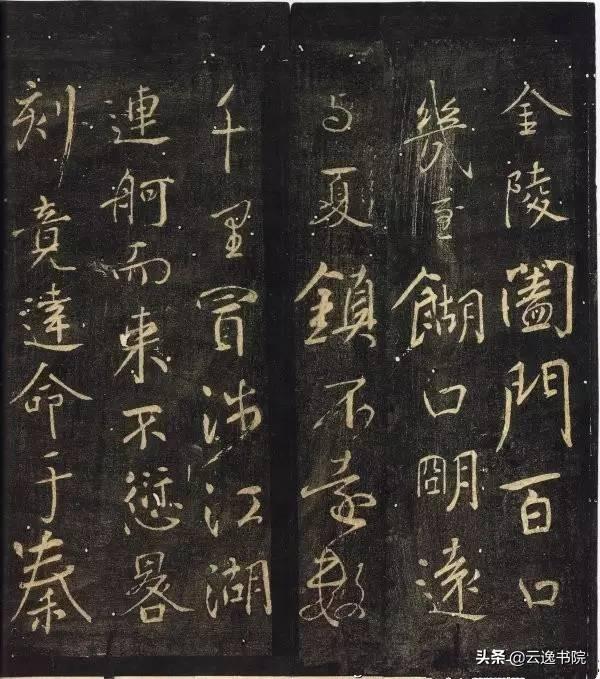 金陵闔門百口
幾至餬口朙遠
与夏鎮不遠數
千里冒涉江湖
連舸而來不愆晷
刻竟達命于秦
头条 @云逸书院